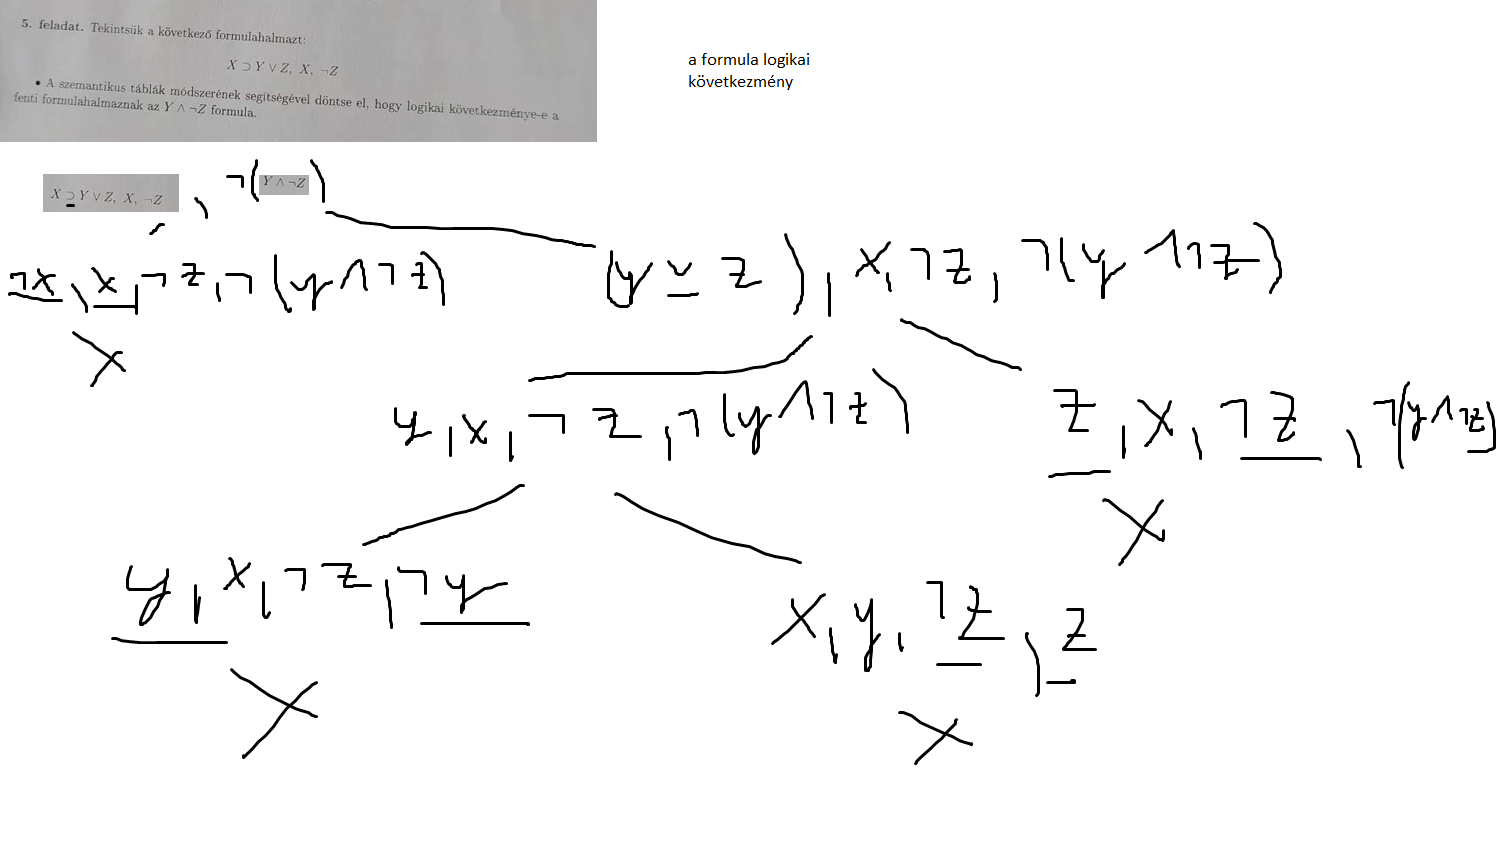 5. feladat. Tekintsük a következő formulahalmazt:
X ⊃ Y ∨ Z, X, ¬Z
• A szemantikus táblák módszerének segítségével döntse el, hogy logikai következménye-e a
fenti formulahalmaznak az Y ∧ ¬Z formula.
a formula logikai
következmény
X ⊃ Y ∨ Z, X, ¬Z , ¬( Y ∧ ¬Z )
¬x, x, ¬z, ¬(y ∧ ¬z) (y ∨ z), x, ¬z, ¬(y ∧ ¬z)
X
y, x, ¬z, ¬(y ∧ ¬z) z, x, ¬z, ¬(y ∧ ¬z)
X
y, x, ¬z, ¬y x, y, ¬z, z
X X